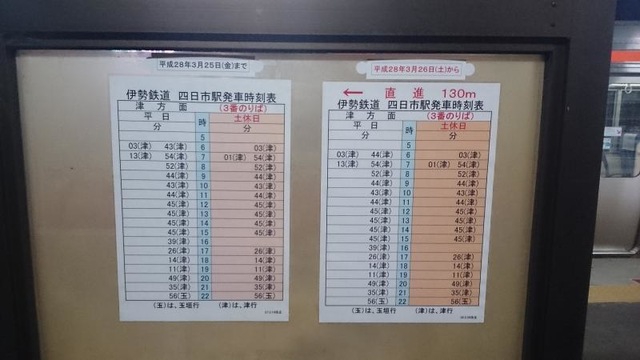 平成28年3月25日(金)まで
伊勢鉄道 四日市駅発車時刻表
津 方 面 (3番のりば)
平 日 時 土休日
分 分
5
03(津) 43(津) 6 03(津)
13(津) 54(津) 7 01(津) 54(津)
52(津) 8 52(津)
44(津) 9 44(津)
43(津) 10 43(津)
44(津) 11 44(津)
45(津) 12 45(津)
45(津) 13 45(津)
45(津) 14 45(津)
45(津) 15 45(津)
39(津) 16
26(津) 17 26(津)
14(津) 18 14(津)
11(津) 19 11(津)
49(津) 20 49(津)
35(津) 21 35(津)
56(玉) 22 56(玉)
(玉)は、玉垣行 (津)は、津行
平成28年3月26日(土)から
← 直 進 130m
伊勢鉄道 四日市駅発車時刻表
津 方 面 (3番のりば)
平 日 時 土休日
分 分
5
03(津) 44(津) 6 03(津)
13(津) 54(津) 7 01(津) 54(津)
52(津) 8 52(津)
44(津) 9 44(津)
43(津) 10 43(津)
44(津) 11 44(津)
45(津) 12 45(津)
45(津) 13 45(津)
45(津) 14 45(津)
45(津) 15 45(津)
39(津) 16
26(津) 17 26(津)
14(津) 18 14(津)
11(津) 19 11(津)
49(津) 20 49(津)
35(津) 21 35(津)
56(玉) 22 56(玉)
(玉)は、玉垣行 (津)は、津行